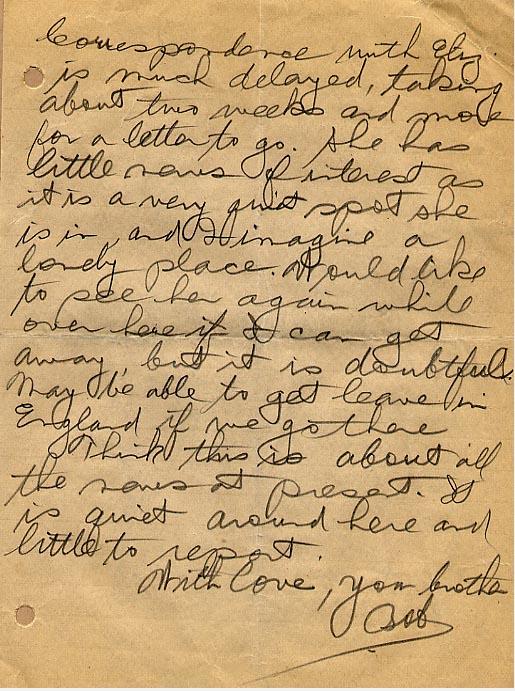 Correspondence with Eliz.
is much delayed, taking
about two weeks and more
for a letter to go. She has
little news of interest as
it is a very quiet spot she
is in, and I imagine a
lonely place. Would like
to see her again while
over here if I can get
away, but it is doubtful.
May be able to get leave in
England if we go there
Think this is about all
the news at present. It
is quiet around here and
little to report.
With love, your brother
Bob